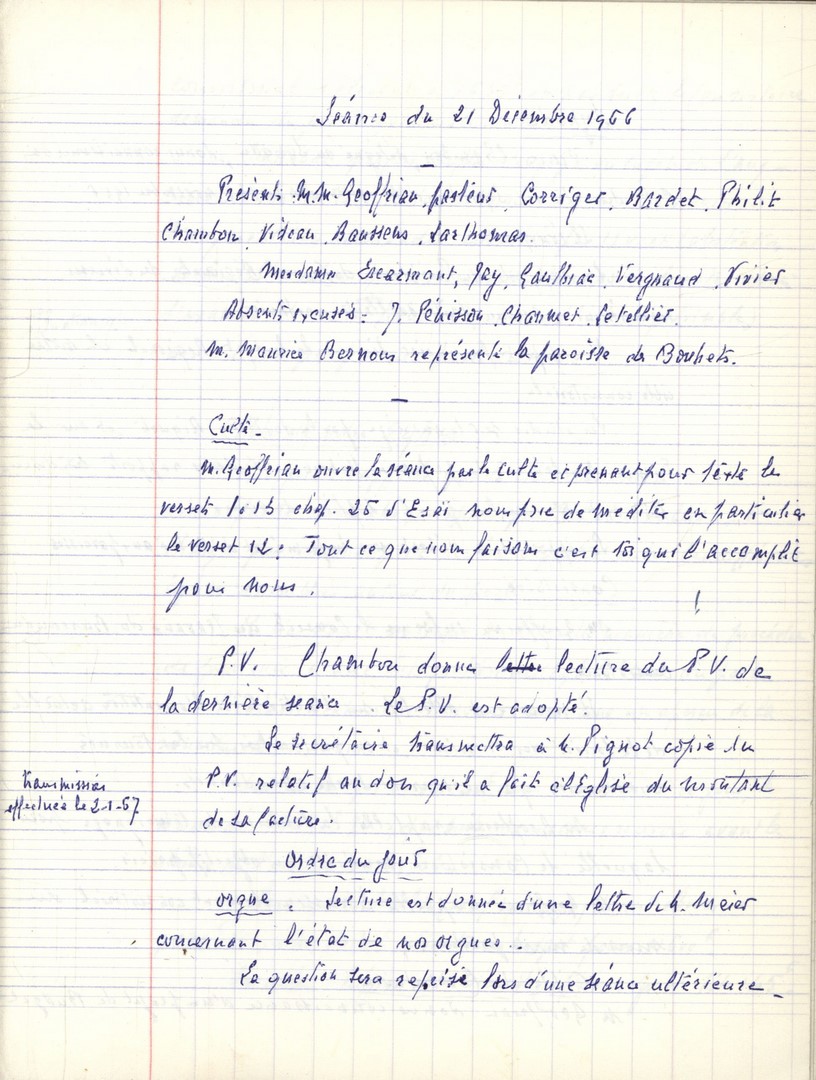 Séance du 21 Décembre 1966
Présents M.M. Geoffrian, pasteur, Corriger, Bardet, Philit
Chambon, Videau, Baussens, Larthomas.
Mesdames Escarmant, Jay, Gaulhiac, Vergnaud, Vivier
Absents excusés : J. Pénisson, Chaumet, Letellier.
M. Maurice Bernous représente la paroisse des Bouhets.
Culte.
M. Geoffrian ouvre la séance par le culte et prenant pour texte le
versets 1 à 13 chap. 25 d'Esaï nous prie de méditer en particulier
le verset 12 : Tout ce que nous faisons c'est toi qui l'accomplit
pour nous. !
P.V. Chambon donne lecture du P.V. de
la dernière séance. Le P.V. est adopté.
Le secrétaire transmettra à M. Pignot copie du
P.V. relatif au don qu'il a fait à l'Eglise du montant
transmission
effectuée le 2-1-67
de sa facture.
Ordre du jour
orgue. Lecture est donnée d'une lettre de M. Meier
concernant l'état de nos orgues..
La question sera reprise lors d'une séance ultérieure.